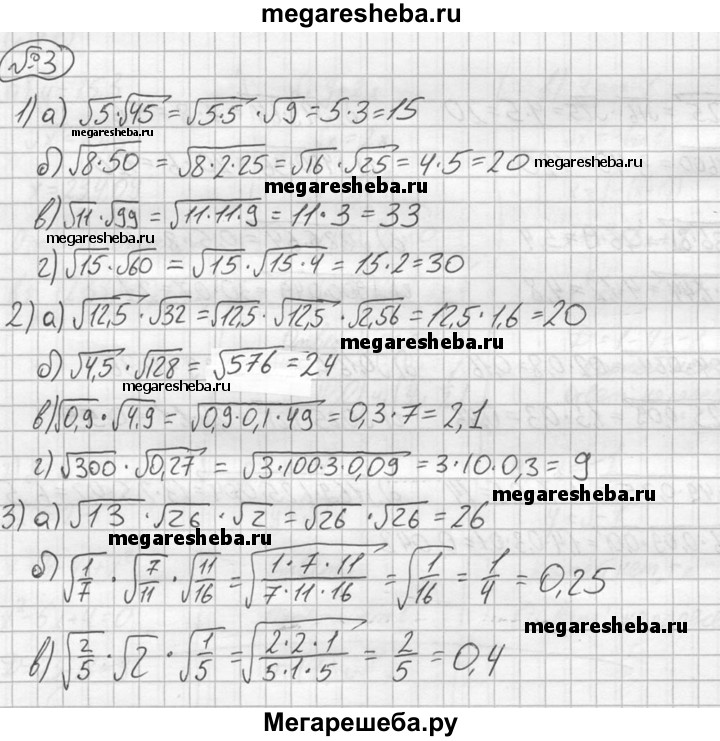 megaresheba.ru
№3
1) а) √5·√45 = √5·5 · √9 = 5·3 = 15
megaresheba.ru
б) √8·50 = √8·2·25 = √16 · √25 = 4·5 = 20 megaresheba.ru
megaresheba.ru
в) √11·√99 = √11·11·9 = 11·3 = 33
megaresheba.ru
г) √15·√60 = √15·√15·4 = 15·2 = 30
2) а) √12,5 · √32 = √12,5 · √12,5 · √2,56 = 12,5·1,6 = 20
megaresheba.ru
б) √4,5 · √128 = √576 = 24
megaresheba.ru
в) √0,9 · √4,9 = √0,9·0,1·49 = 0,3·7 = 2,1
г) √300 · √0,27 = √3·100·3·0,09 = 3·10·0,3 = 9
megaresheba.ru
3) а) √13 · √26 · √2 = √26 · √26 = 26
megaresheba.ru
б) √1/7 · √7/11 · √11/16 = √(1·7·11)/(7·11·16) = √1/16 = 1/4 = 0,25
megaresheba.ru
в) √2/5 · √2 · √1/5 = √(2·2·1)/(5·1·5) = 2/5 = 0,4
Мегарешеба.ру